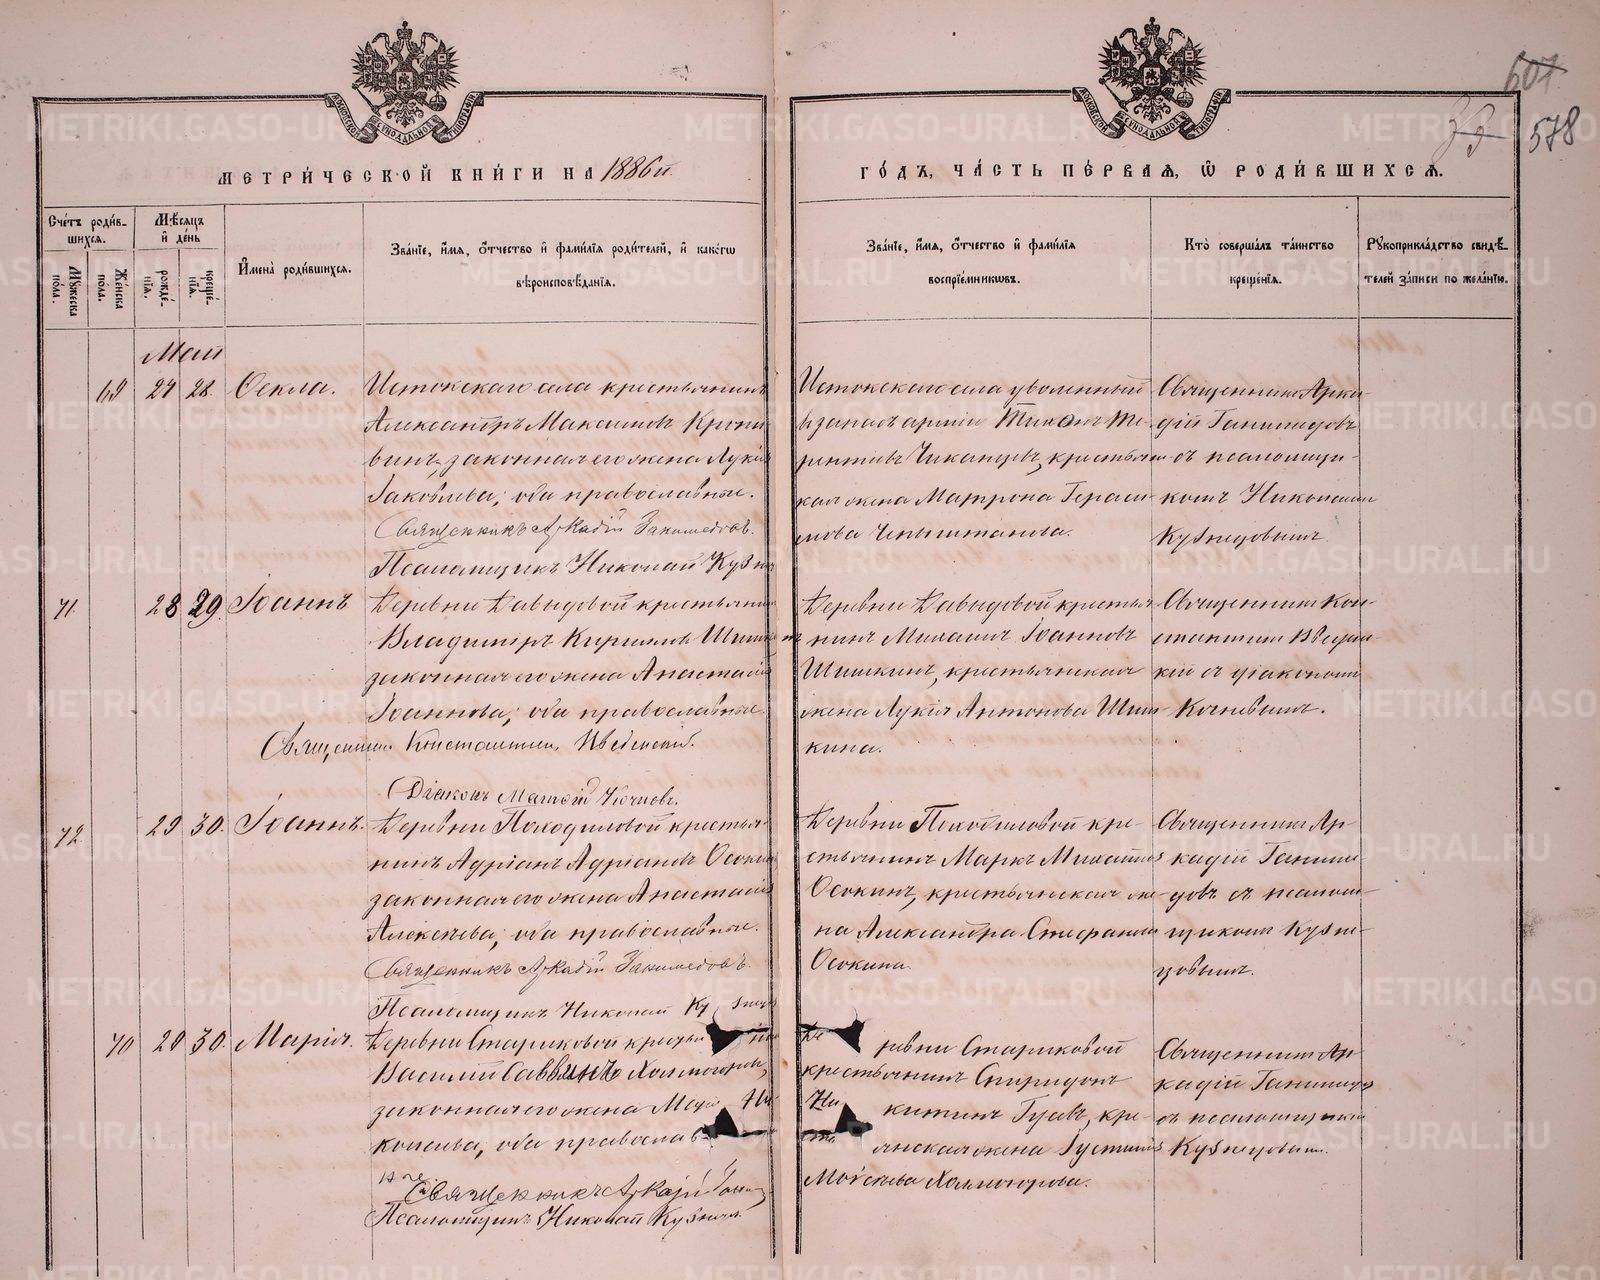 607
33
578
МЕТРИ́ЧЕСКОЙ КНИ́ГИ НА 1886й
ГО́ДЪ, ЧА́СТЬ ПЕ́РВАѦ, Ѽ РОДИ́ВШИХСѦ.
Сче́тъ роди́в-
шихсѧ.
Мѣ́сѧцъ
и҆ де́нь
Мꙋ́жеска
по́ла.
Же́нска
по́ла.
рожде́-
нїѧ.
креще́-
нїѧ.
И҆мена̀ роди́вшихсѧ.
Зва́нїе, и҆́мѧ, ѻ҆́тчество и҆ фами́лїѧ роди́телей, и҆ како́гѡ
вѣроисповѣ́данїѧ.
Зва́нїе, и҆́мѧ, ѻ҆́тчество и҆ фами́лїѧ
воспрїе́мникѡвъ.
Кто̀ соверша́лъ та́инство
креще́нїѧ.
Рꙋкоприкла́дство свидѣ́-
телей за́писи по жела́нїю.
Май
69 27 28. Ѳекла.
Истокскаго села крестьянинъ
Александръ Максимовъ
законная его жена
Іаковлева; оба православные.
Священникъ Аркадій Ганимедовъ.
Псаломщикъ Николай
Истокскаго села уволенный
въ запасъ арміи Тихонъ Те-
рентіевъ Чиканцевъ,
кая жена Матрона Гераси-
мова
Священникъ Арка-
дій Ганимедовъ
съ псаломщи-
комъ Николаемъ
Кузнецовымъ.
71. 28 29. Іоаннъ
Деревни Давыдовой
Владиміръ Кириловъ
законная его жена Анастасія
Іоаннова; оба православные.
Священникъ Константинъ Введенскій.
Діаконъ Матѳій Кочневъ.
Деревни Давыдовой крестья-
нинъ Михаилъ Іоанновъ
Шишкинъ, крестьянская
жена Лукія Антонова Шиш-
кина.
Священникъ Кон-
стантинъ Введен-
скій съ діакономъ
Кочневымъ.
72. 29 30. Іоаннъ.
Деревни Походиловой крестья-
нинъ Адріанъ Адріановъ
законная его жена Анастасія
Алексѣева; оба православные.
Священникъ Аркадій Ганимедовъ.
Псаломщикъ Николай
Деревни Походиловой кре-
стьянинъ Маркъ Михайловъ
Осокинъ, крестьянская же-
на Александра
Осокина.
Священникъ Ар-
кадій Ганиме-
довъ съ псалом-
щикомъ Кузне-
цовымъ.
70 29 30. Марія.
Деревни Стариковой
Василій Саввинъ Холмогоровъ,
законная его жена
оба православ-
ные
Священникъ Аркадій
Псаломщикъ Николай
Деревни Стариковой
крестьянинъ Спиридонъ
Ни китинъ кре-
стьянская жена Іустинія
Моѵсеева Холмогорова.
Священникъ Ар-
кадій Ганимедовъ
съ псаломщикомъ
Кузнецовымъ.
METRIKI.GASO-URAL.RU